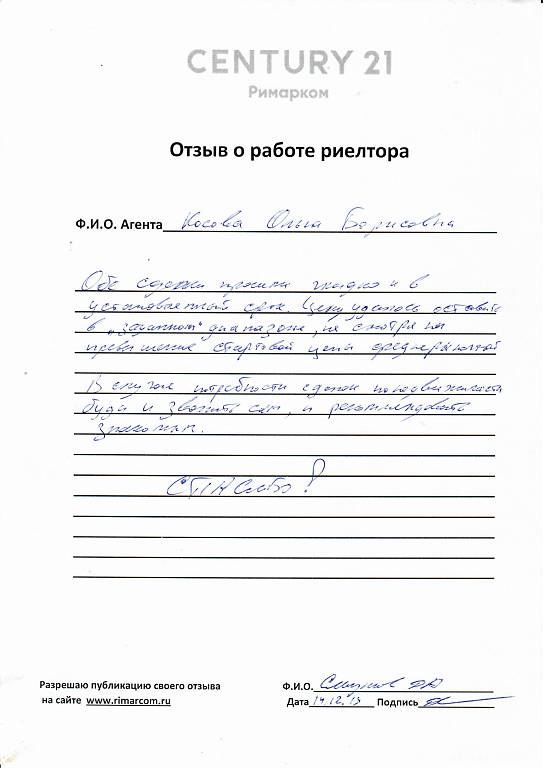 CENTURY 21
Римарком
Отзыв о работе риелтора
Ф.И.О. Агента Косова Ольга Борисовна
Обе сделки прошли гладко и в
установленный срок. Цену удалось оставить
в "заданном" диапазоне, не смотря на
превышение стартовой цены среднерыночной
В случае потребности сделок по недвижимости
буду и звонить сам, и рекомендовать
знакомым.
СПАСИБО!
Разрешаю публикацию своего отзыва
на сайте www.rimarcom.ru
Ф.И.О. Смирнов
Дата 19.12.15 Подпись